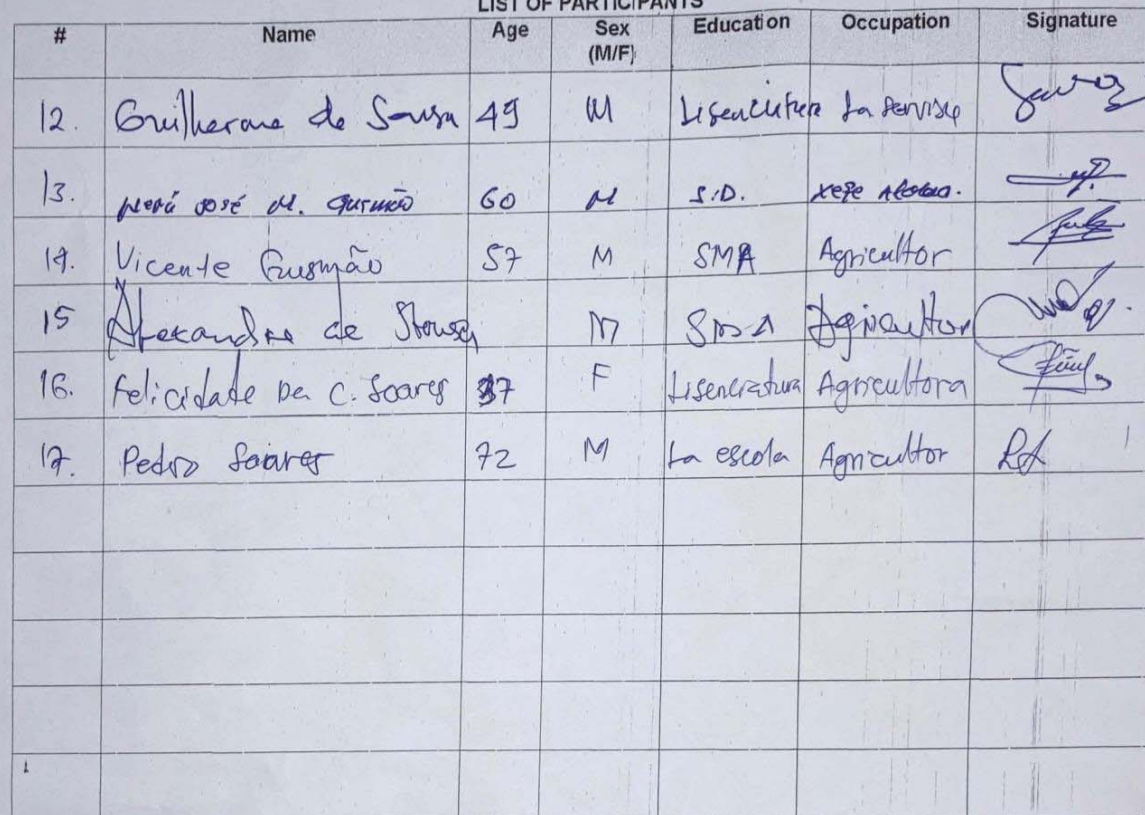 LIST OF PARTICIPANTS
# Name Age Sex (M/F) Education Occupation Signature
12. Guilherme de Sousa 49 M Lisencitura La servisu
13. José M. Gusmão 60 M S.D. xefe
14. Vicente Gusmão 57 M SMA Agricultor
15 Alexandre de Sousa M SMA Agricultor
16. Felicidade Da C. Soares 37 F Lisenciatura Agricultora
17. Pedro Soares 72 M La escola Agricultor